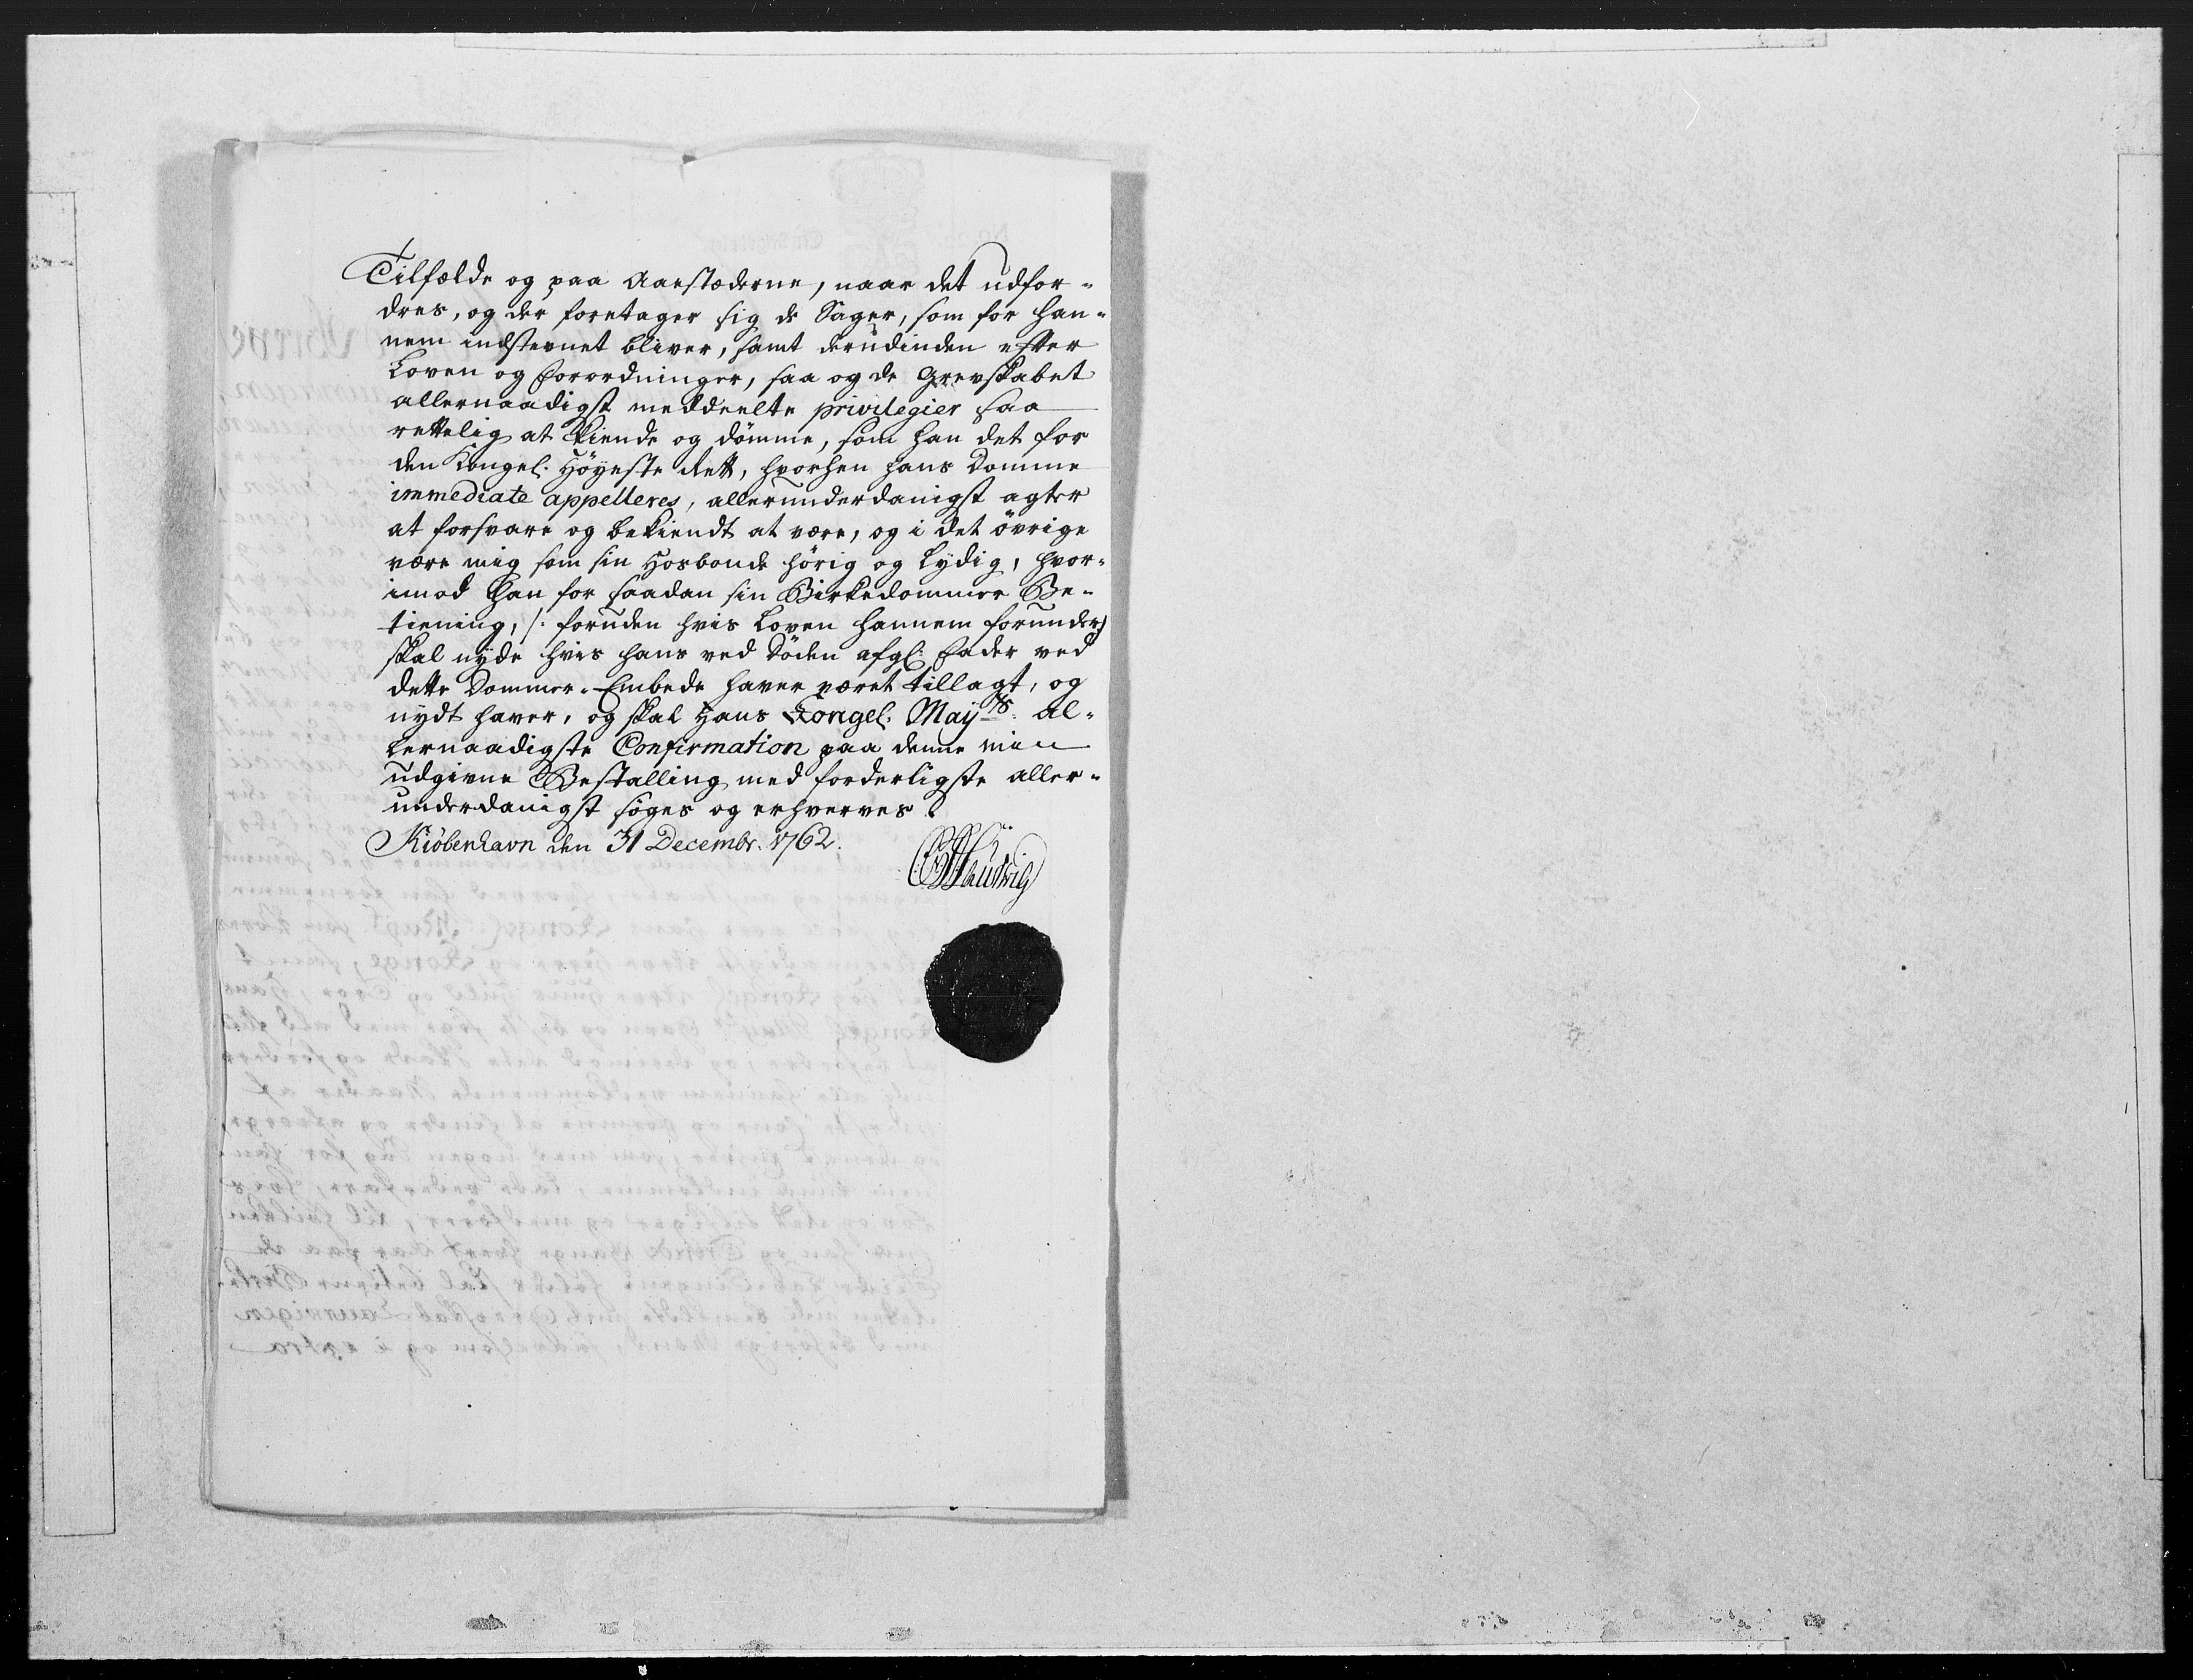 Tilfælde og paa Aastæderne, naar det udfor-
dres, og der foretager sig de Sager, som for han-
nem indstevnet bliver, samt derudinden efter
Loven og Forordninger, saa og de Grevskabet
allernaadigst meddeelte privilegier saa
rettelig at kiende og dömme, som han det for
den Kongel. Höyeste Rett, hvorhen hans Domme
immediate appelleres, allerunderdanigst agter
at forsvare og bekiendt at være, og i det övrige
være mig som sin Hosbonde hörig og lydig, hvor-
imod han for saadan sin Birkedommer Be-
tiening, /: foruden hvis Loven hannem forunder /
skal nyde hvis hans ved Döden afgl: Fader ved
dette Dommer-Embede haver været tillagt, og
nydt haver, og skal Hans Kongel. Mayts. al-
lernaadigste Confirmation paa denne min
udgivne Bestalling med forderligste aller-
underdanigst söges og erhverves.
Kiöbenhavn den 31 Decembr. 1762.